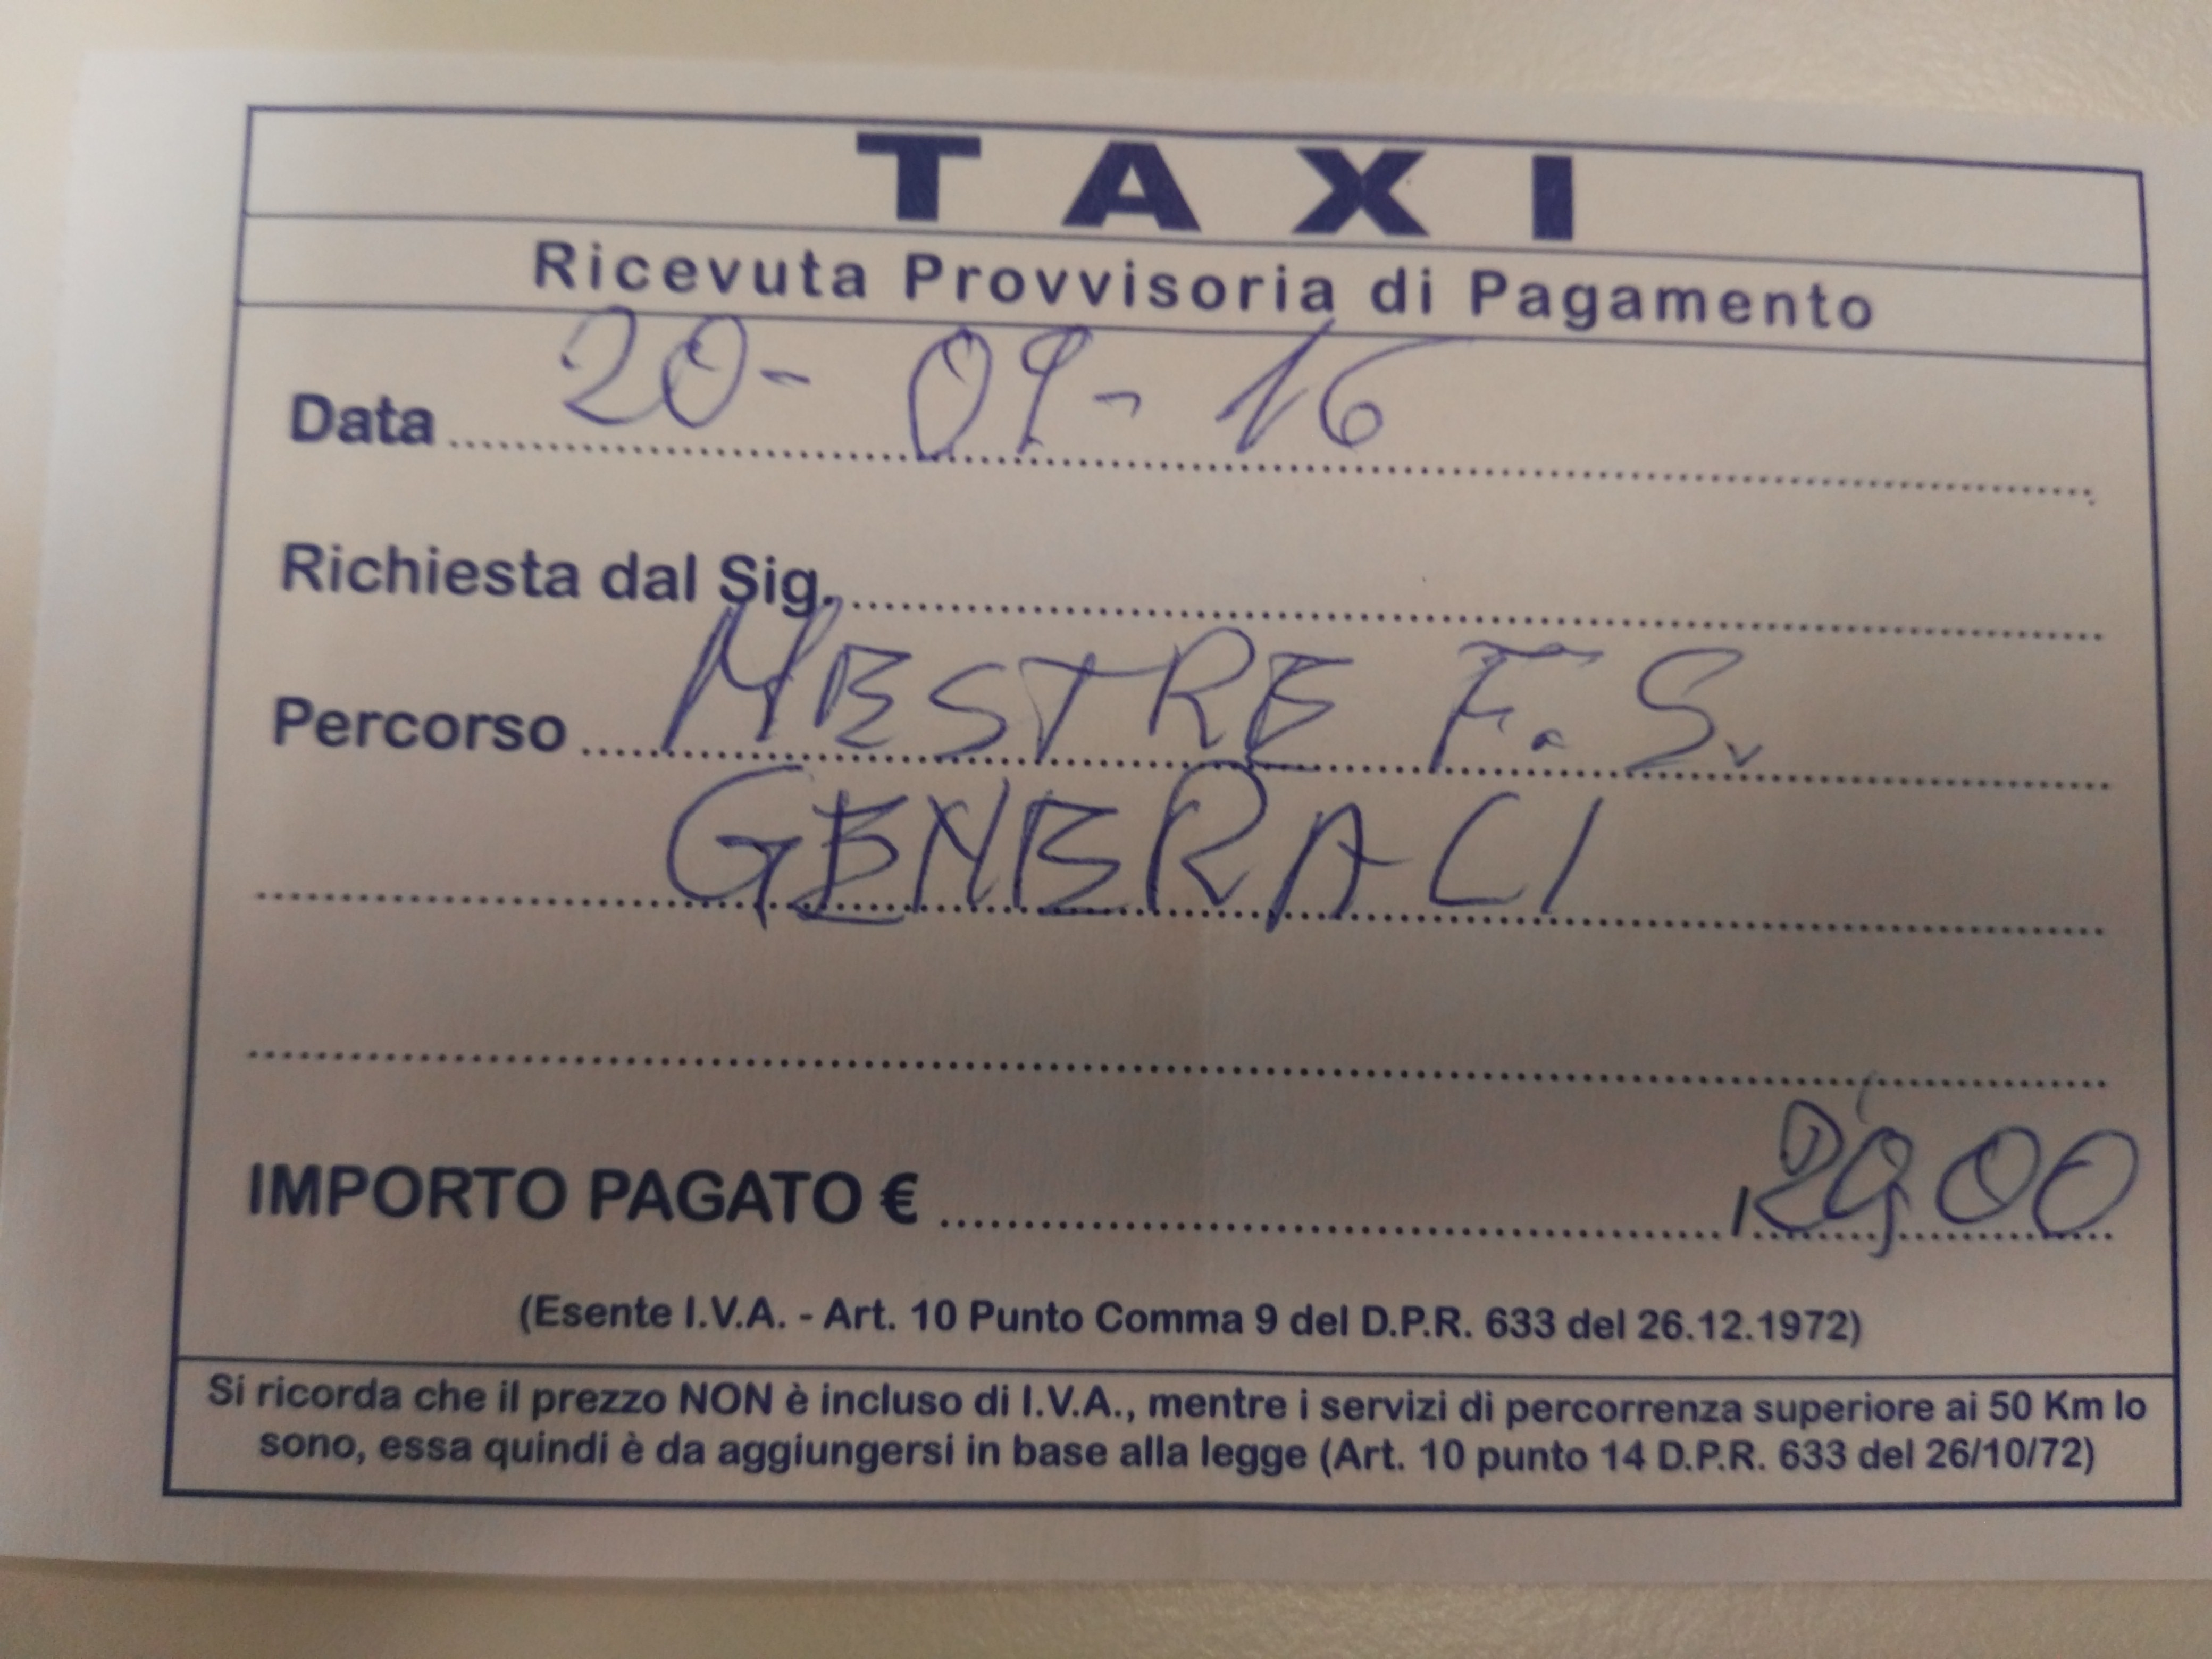 TAXI
Ricevuta Provvisoria di Pagamento
Data 20-09-16
Richiesta dal Sig.
Percorso MESTRE F.S.
GENERALI
IMPORTO PAGATO €
(Esente I.V.A. - Art. 10 Punto Comma 9 del D.P.R. 633 del 26.12.1972)
Si ricorda che il prezzo NON è incluso di I.V.A., mentre i servizi di percorrenza superiore ai 50 Km lo
sono, essa quindi è da aggiungersi in base alla legge (Art. 10 punto 14 D.P.R. 633 del 26/10/72)